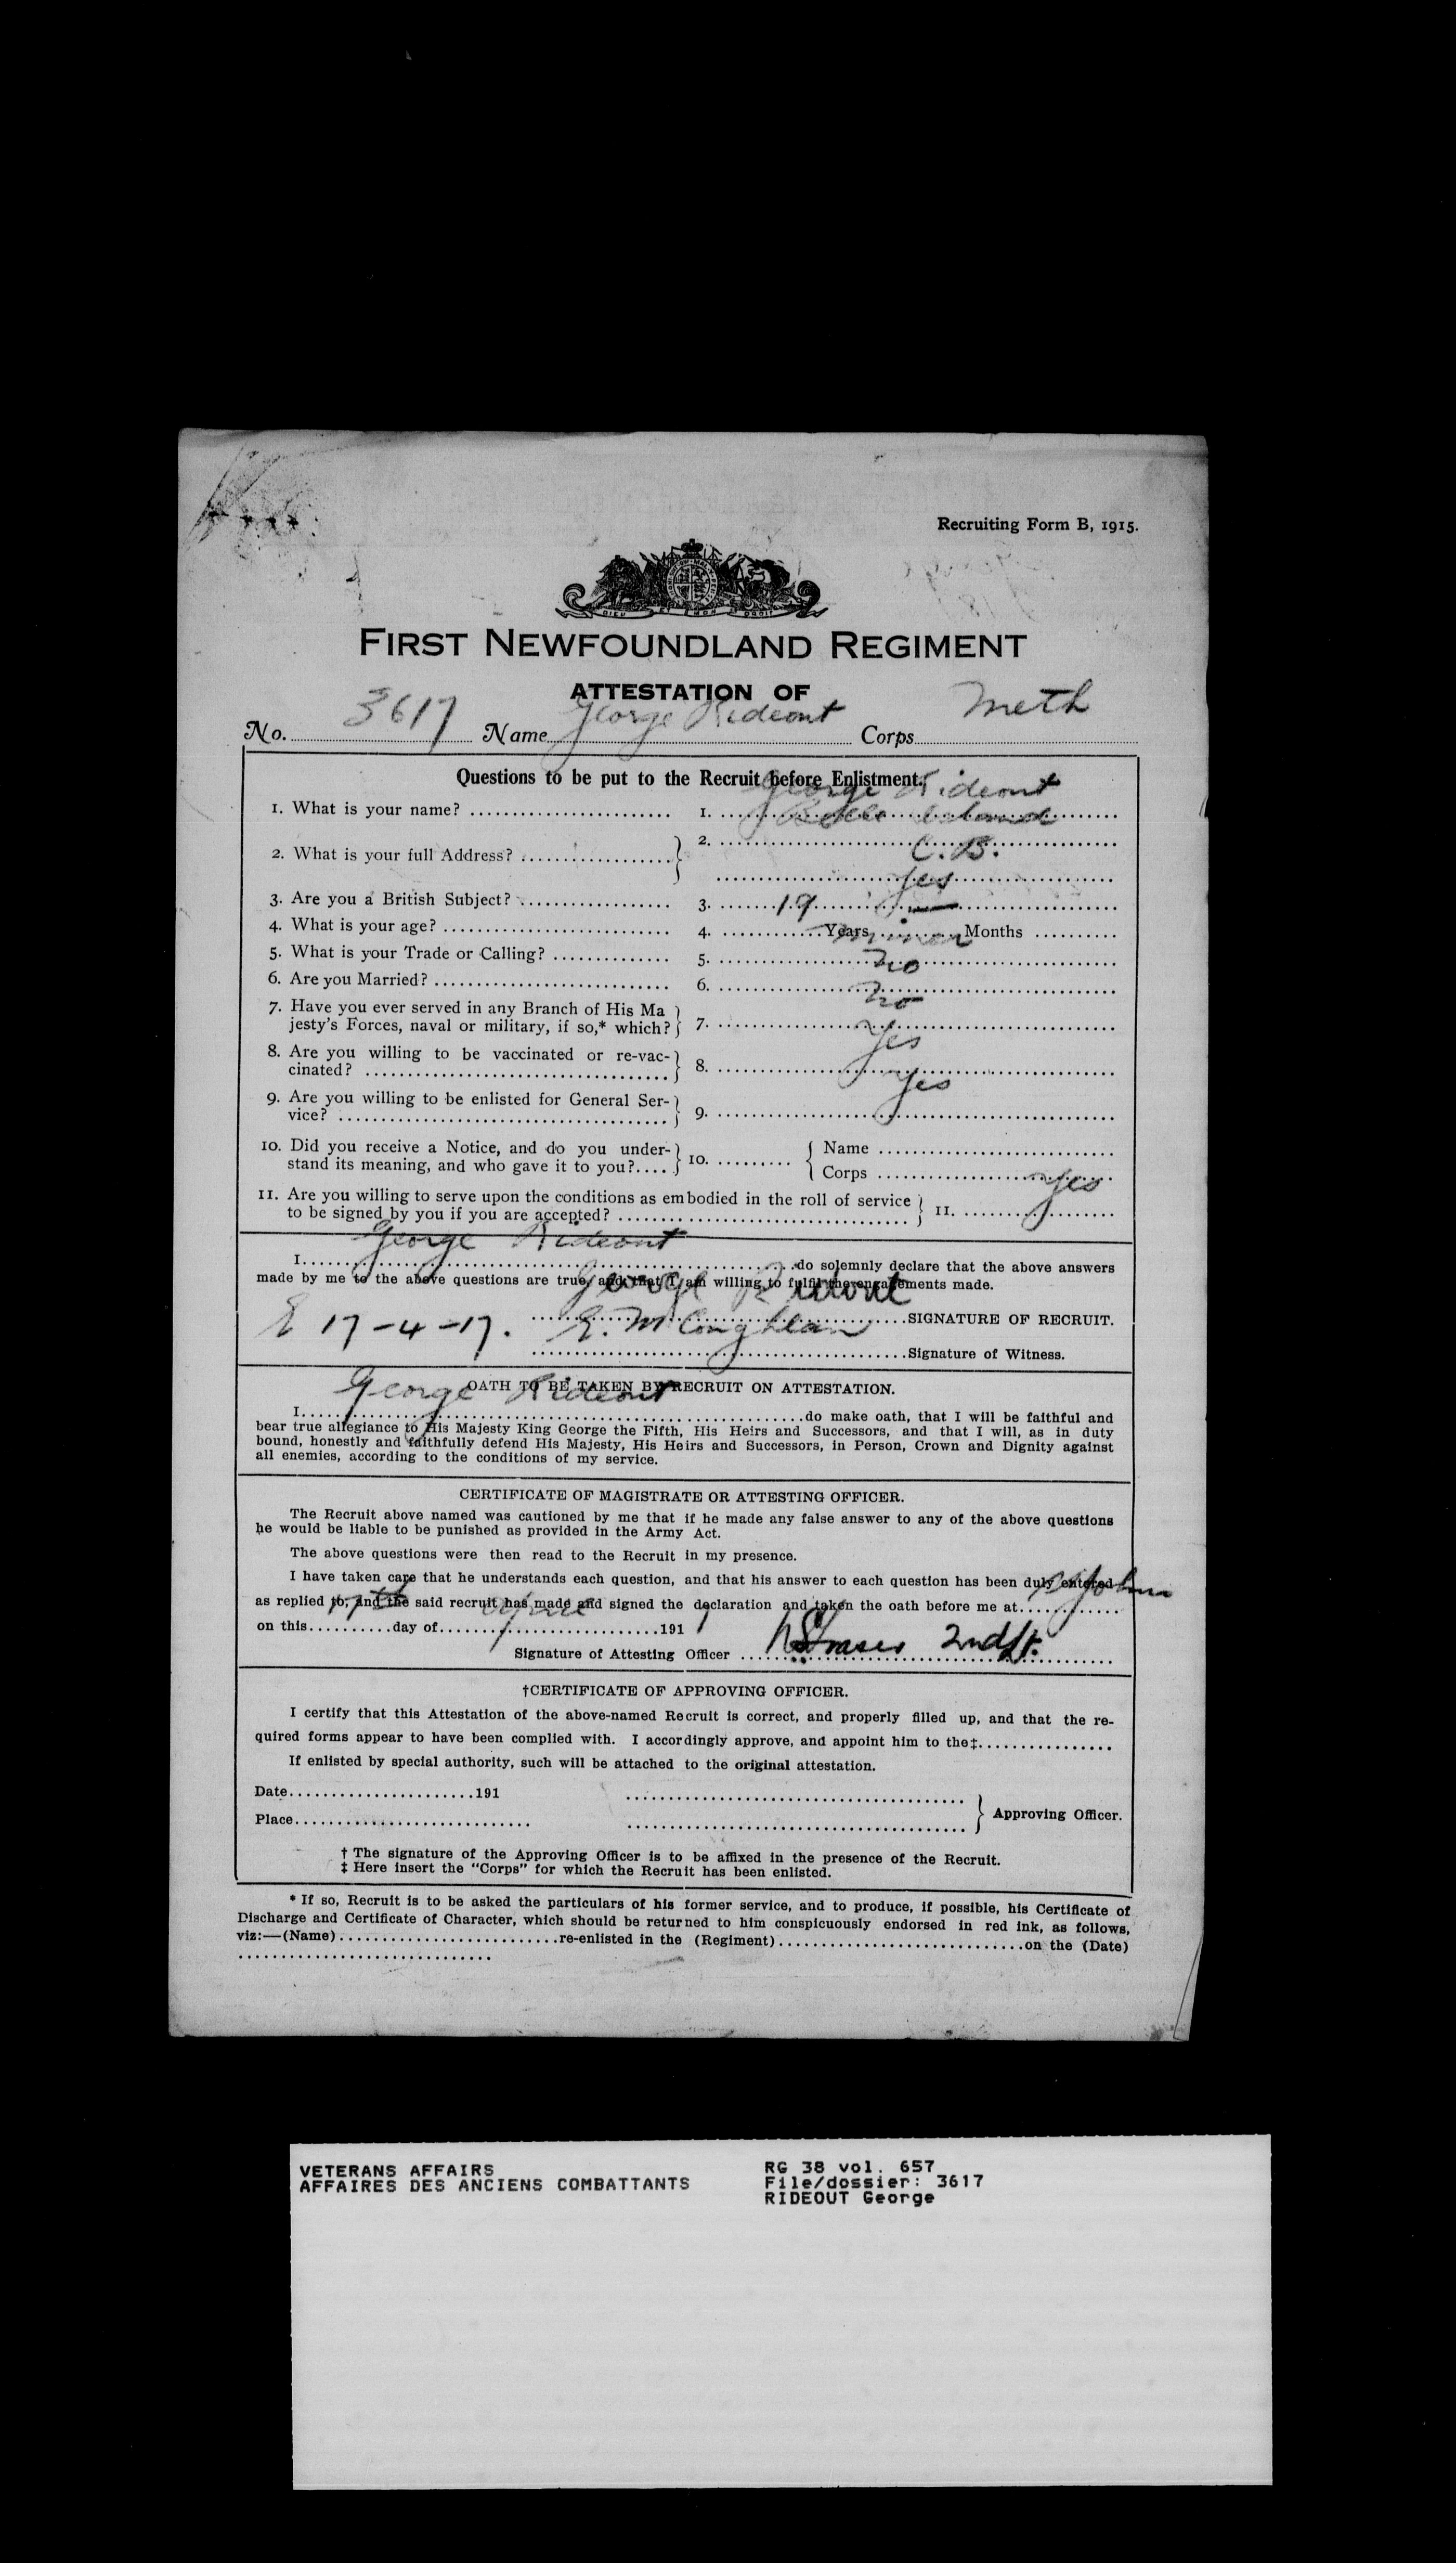 Recruiting Form B, 1915.
DIEU ET MON DROIT
FIRST NEWFOUNDLAND REGIMENT
ATTESTATION OF
No. 3617 Name George Rideout Corps Meth
Questions to be put to the Recruit before Enlistment.
1. What is your name? 1. George Rideout
2. What is your full Address? 2. Island
C. B.
3. Are you a British Subject? 3. Yes
4. What is your age? 4. 19 Years — Months
5. What is your Trade or Calling? 5. Miner
6. Are you Married? 6. No
7. Have you ever served in any Branch of His Ma
jesty's Forces, naval or military, if so,* which? 7. No
8. Are you willing to be vaccinated or re-vac-
cinated? 8. Yes
9. Are you willing to be enlisted for General Ser-
vice? 9. Yes
10. Did you receive a Notice, and do you under-
stand its meaning, and who gave it to you? 10. Name
Corps
11. Are you willing to serve upon the conditions as embodied in the roll of service
to be signed by you if you are accepted? 11. Yes
I George Rideout do solemnly declare that the above answers
made by me to the above questions are true, and that I am willing to fulfil the engagements made.
George Rideout SIGNATURE OF RECRUIT.
17-4-17. E. McCoughlan Signature of Witness.
OATH TO BE TAKEN BY RECRUIT ON ATTESTATION.
I George Rideout do make oath, that I will be faithful and
bear true allegiance to His Majesty King George the Fifth, His Heirs and Successors, and that I will, as in duty
bound, honestly and faithfully defend His Majesty, His Heirs and Successors, in Person, Crown and Dignity against
all enemies, according to the conditions of my service.
CERTIFICATE OF MAGISTRATE OR ATTESTING OFFICER.
The Recruit above named was cautioned by me that if he made any false answer to any of the above questions
he would be liable to be punished as provided in the Army Act.
The above questions were then read to the Recruit in my presence.
I have taken care that he understands each question, and that his answer to each question has been duly entered
as replied to, and the said recruit has made and signed the declaration and taken the oath before me at St Johns
on this 17th day of April 1917
Signature of Attesting Officer 2nd Lt.
†CERTIFICATE OF APPROVING OFFICER.
I certify that this Attestation of the above-named Recruit is correct, and properly filled up, and that the re-
quired forms appear to have been complied with. I accordingly approve, and appoint him to the‡
If enlisted by special authority, such will be attached to the original attestation.
Date 191
Place
Approving Officer.
† The signature of the Approving Officer is to be affixed in the presence of the Recruit.
‡ Here insert the "Corps" for which the Recruit has been enlisted.
* If so, Recruit is to be asked the particulars of his former service, and to produce, if possible, his Certificate of
Discharge and Certificate of Character, which should be returned to him conspicuously endorsed in red ink, as follows,
viz:—(Name) re-enlisted in the (Regiment) on the (Date)
VETERANS AFFAIRS
AFFAIRES DES ANCIENS COMBATTANTS
RG 38 vol. 657
File/dossier: 3617
RIDEOUT George